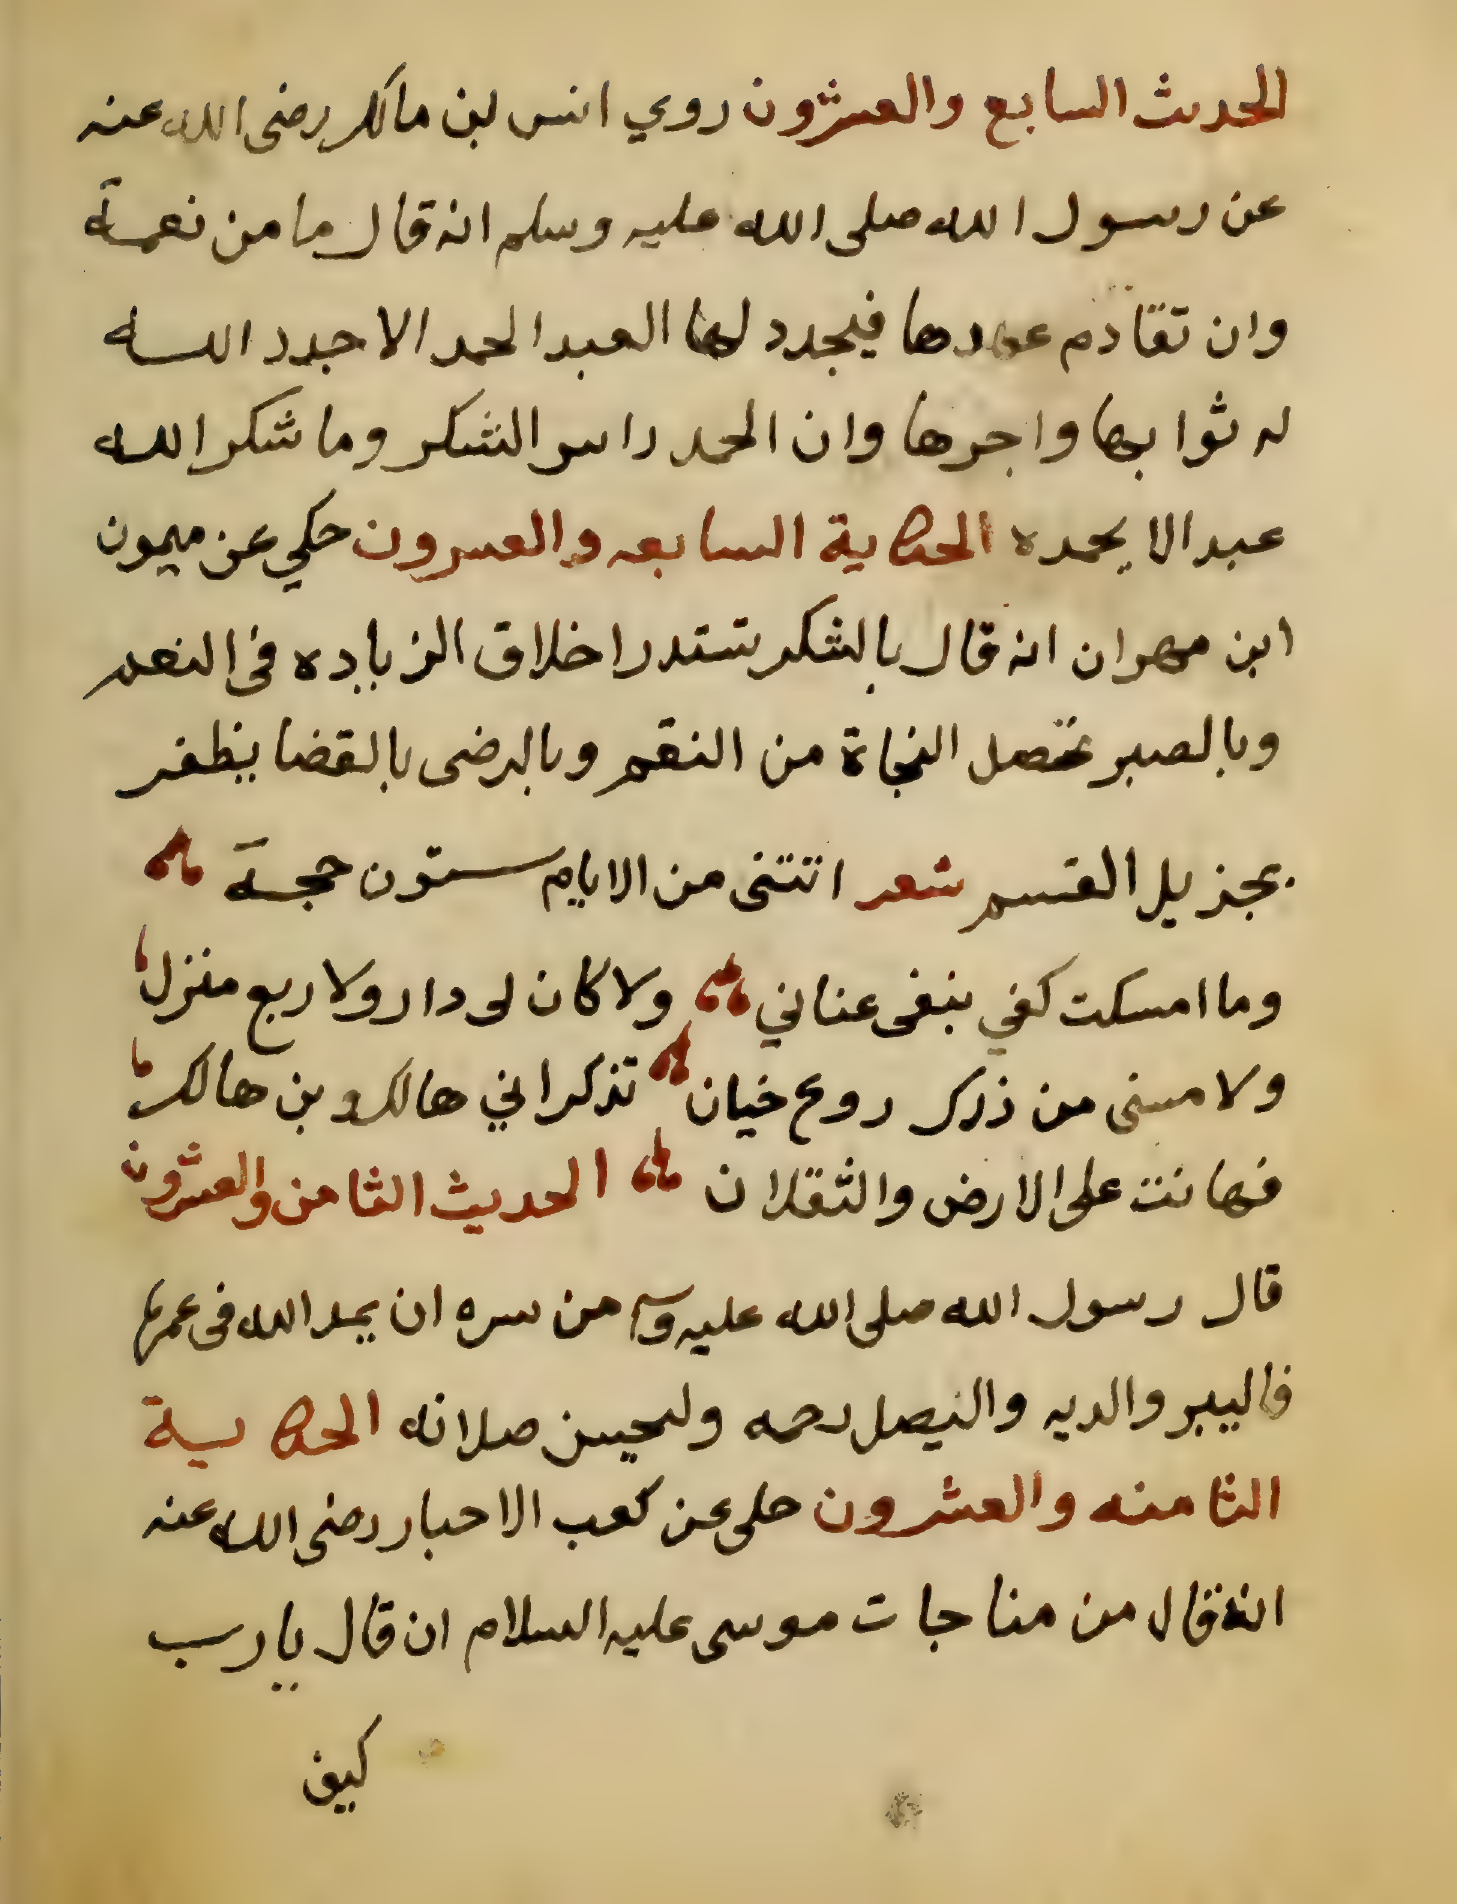 الحديث السابع والعشرون روي انس ابن مالك رضى الله عنه
عن رسول الله صلى الله عليه وسلم انه قال ما من نعمة
وان تقادم عهدها فيجدد لها العبد الحمد الا جدد الله
له ثوابها واجرها وان الحمد راس الشكر وما شكر الله
عبد الا يحمده الحكاية السابعه والعسرون حكي عن ميمون
ابن مهران انه قال بالشكر تستدر اخلاق الزياده فى النعم
وبالصبر تحصل النجاة من النقم وبالرضى بالقضا يظفر
بجزيل القسم شعر اتتنى من الايام ستون حجة
وما امسكت كفي بنغى عناني ولا كان لى دار ولا ربع منزل
ولا مسنى من ذرك روح خيان تذكر اني هالك وبن هالك
فهانت على الارض والثقلان الحديث الثامن والعشرون
قال رسول الله صلى الله عليه وسلم من سره ان يمد الله فى عمره
فاليبر والديه واليصل رحمه وليحسن صلاته الحكايسة
الثامنه والعشرون حلى عن كعب الاحبار رضى الله عنه
انه قال من مناجات موسى عليه السلام ان قال يا رب
كيف